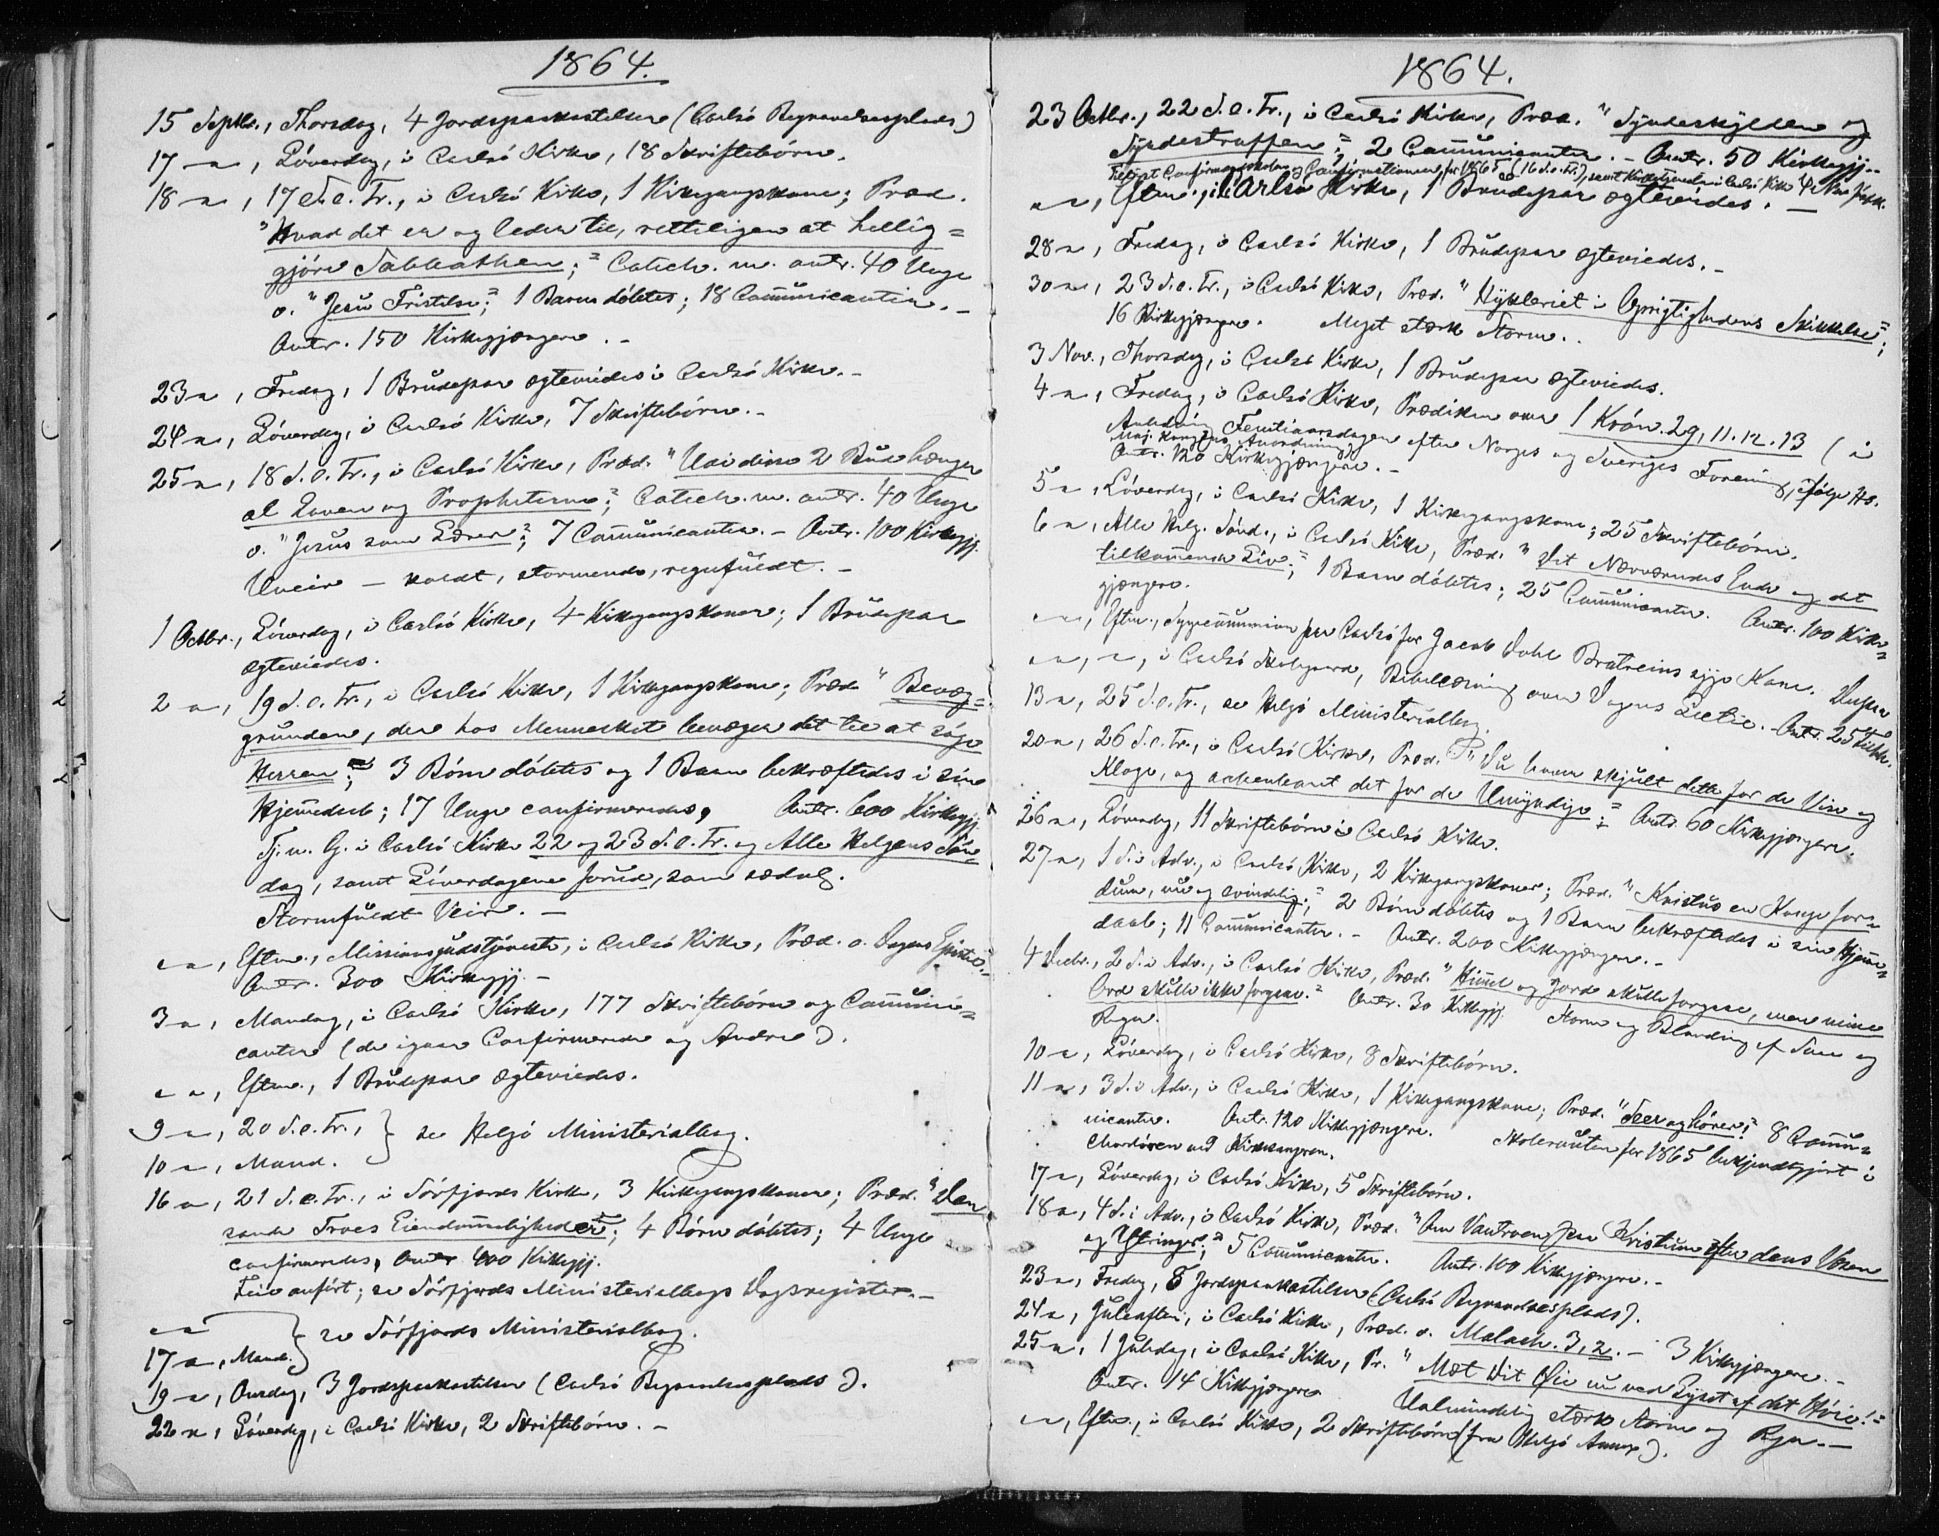 1864.
15 Septbr., Thorsdag, 4 Jordspaakastelser (Carlsö Begravelsesplads)
17 — " —, Löverdag, i Carlsö Kirke, 18 Skriftebörn.
18 — " —, 17 S. e. Tr., i Carlsö Kirke, 1 Kirkegangskone; Præd.
"Hvad det er og leder til, retteligen at hellig=
gjöre Sabbathen;" Catech. m. antr. 40 Unge
o. "Jesu Fristelse;" 1 Barn döbtes; 18 Communicanter. —
Antr. 150 Kirkegjængere. —
23 — " —, Fredag, 1 Brudepar ægteviedes i Carlsö Kirke. —
24 — " —, Löverdag, i Carlsö Kirke, 7 Skriftebörn. —
25 — " —, 18 S. e. Tr., i Carlsö Kirke, Præd. "Udi disse 2 Bud hænger
al Loven og Propheterne;" Catech. m. antr. 40 Unge
o. "Jesus som Lærer;" 7 Communicanter. — Antr. 100 Kirkegjj.
Uveir — koldt, stormende, regnfuldt. —
1 Octbr., Löverdag, i Carlsö Kirke, 4 Kirkegangskoner; 1 Brudepar
ægteviedes.
2 — " —, 19 S. e. Tr., i Carlsö Kirke, 1 Kirkegangskone; Præd. "Bevæg=
grundene, der hos Mennesket bevæger det til at söge
Herren;" 3 Börn döbtes og 1 Barn bekræftedes i sin
Hjemmedaab; 17 Unge confirmeredes, Antr. 600 Kirkegjj.
Tj. m. G. i Carlsö Kirke 22 og 23 S. e. Tr. og Alle Helgens Sön=
dag, samt Löverdagene forud, som sædvl.
Stormfuldt Veir. —
— " —, Eftm., Missionsgudstjeneste, i Carlsö Kirke, Præd. o. Dagens Epistel. —
Antr. 300 Kirkegjj. —
3 — " —, Mandag, i Carlsö Kirke, 177 Skriftebörn og Communi=
canter (de igaar Confirmerede og Andre).
— " —, Eftm., 1 Brudepar ægteviedes.
9 — " —, 20 S. e. Tr., } se Helgö Ministerialbog.
10 — " —, Mand.
16 — " —, 21 S. e. Tr., i Sörfjords Kirke, 3 Kirkegangskoner; Præd. "Den
sande Troes Eiendommeligheder;" 4 Börn döbtes; 4 Unge
confirmeredes, Antr. 400 Kirkegjj.
Feil anfört; se Sörfjords Ministerialbogs Dagsregister. —
— " — } se Sörfjords Ministerialbog.
17 — " —, Mand.
19 — " —, Onsdag, 3 Jordspaakastelser (Carlsö Begravelsesplads).
22 — " —, Löverdag, i Carlsö Kirke, 2 Skriftebörn. —
1864.
23 Octbr., 22 S. e. Tr., i Carlsö Kirke, Præd. "Syndeskylden og
Syndestraffen;" 2 Communicanter. — Antr. 50 Kirkegjj. —
Confirmationen for 1865 (16 S. e. Tr.), samt
— " —, Eftm., i Carlsö Kirke, 1 Brudepar ægteviedes. —
28 — " —, Fredag, i Carlsö Kirke, 1 Brudepar ægteviedes. —
30 — " —, 23 S. e. Tr., i Carlsö Kirke, Præd. "Hykleriet i Oprigtighedens Skikkelse;"
16 Kirkegjængere. Meget stærk Storm.
3 Nov., Thorsdag, i Carlsö Kirke, 1 Brudepar ægteviedes.
4 — " —, Fredag, i Carlsö Kirke, Prædiken over 1 Krön. 29, 11. 12. 13 (i
Anledning Femtiaarsdagen efter Norges og Sveriges Forening, ifölge Hs.
Maj. Kongens Anordning)
Antr. 120 Kirkegjængere. —
5 — " —, Löverdag, i Carlsö Kirke, 1 Kirkegangskone; 25 Skriftebörn.
6 — " —, Alle Helg. Sönd., i Carlsö Kirke, Præd. "Det Nærværendes Ende og det
tilkommende Liv;" 1 Barn döbtes; 25 Communicanter. Antr. 100 Kirke=
gjængere.
— " —, Eftm., Sygecommunion paa Carlsö for Jacob Dahl Bratreins syge Kone.
— " —, — " —, i Carlsö Skolegaard, Bibellæsning over Dagens Lectie. Antr. 25
13 — " —, 25 S. e. Tr., se Helgö Ministerialbog.
20 — " —, 26 S. e. Tr., i Carlsö Kirke, Præd. "Du haver skjult dette for de Vise og
Kloge, og aabenbaret det for de Umyndige;" Antr. 60 Kirkegjængere.
26 — " —, Löverdag, 11 Skriftebörn i Carlsö Kirke.
27 — " —, 1 S. i Adv., i Carlsö Kirke, 2 Kirkegangskoner; Præd. "Kristus en Konge for=
dum, nu og evindelig;" 2 Börn döbtes og 1 Barn bekræftedes i sin Hjemme=
daab; 11 Communicanter. — Antr. 200 Kirkegjængere. —
4 Decbr., 2 S. i Adv., i Carlsö Kirke, Præd. "Himmel og Jord skulle forgaae, men mine
Ord skulle ikke forgaae." Antr. 30 Kirkegjj. Storm og Blanding af Snee og
Regn.
10 — " —, Löverdag, i Carlsö Kirke, 8 Skriftebörn.
11 — " —, 3 S. i Adv., i Carlsö Kirke, 1 Kirkegangskone; Præd. "Seer og hörer!" 8 Commu=
nicanter. Antr. 120 Kirkegjængere. Skolerouten for 1865 bekjendtgjort i
Chordören ved Kirkesangeren.
17 — " —, Löverdag, i Carlsö Kirke, 5 Skriftebörn.
18 — " —, 4 S. i Adv., i Carlsö Kirke, Præd. "Om Vantroen paa Kristum efter dens Væsen
og Yttringer;" 5 Communicanter. Antr. 100 Kirkegjængere. —
23 — " —, Fredag, 8 Jordspaakastelser (Carlsö Begravelsesplads).
24 — " —, Juleaften, i Carlsö Kirke, Præd. o. Malach. 3, 2. — 3 Kirkegjængere. —
25 — " —, 1 Juledag, i Carlsö Kirke, Pr. "Mæt dit Öie nu ved Lyset af det Höie!"
Antr. 14 Kirkegjængere. Ualmindelig stærk Storm og Regn. —
— " —, Eftm., i Carlsö Kirke, 2 Skriftebörn (fra Helgö Annex).